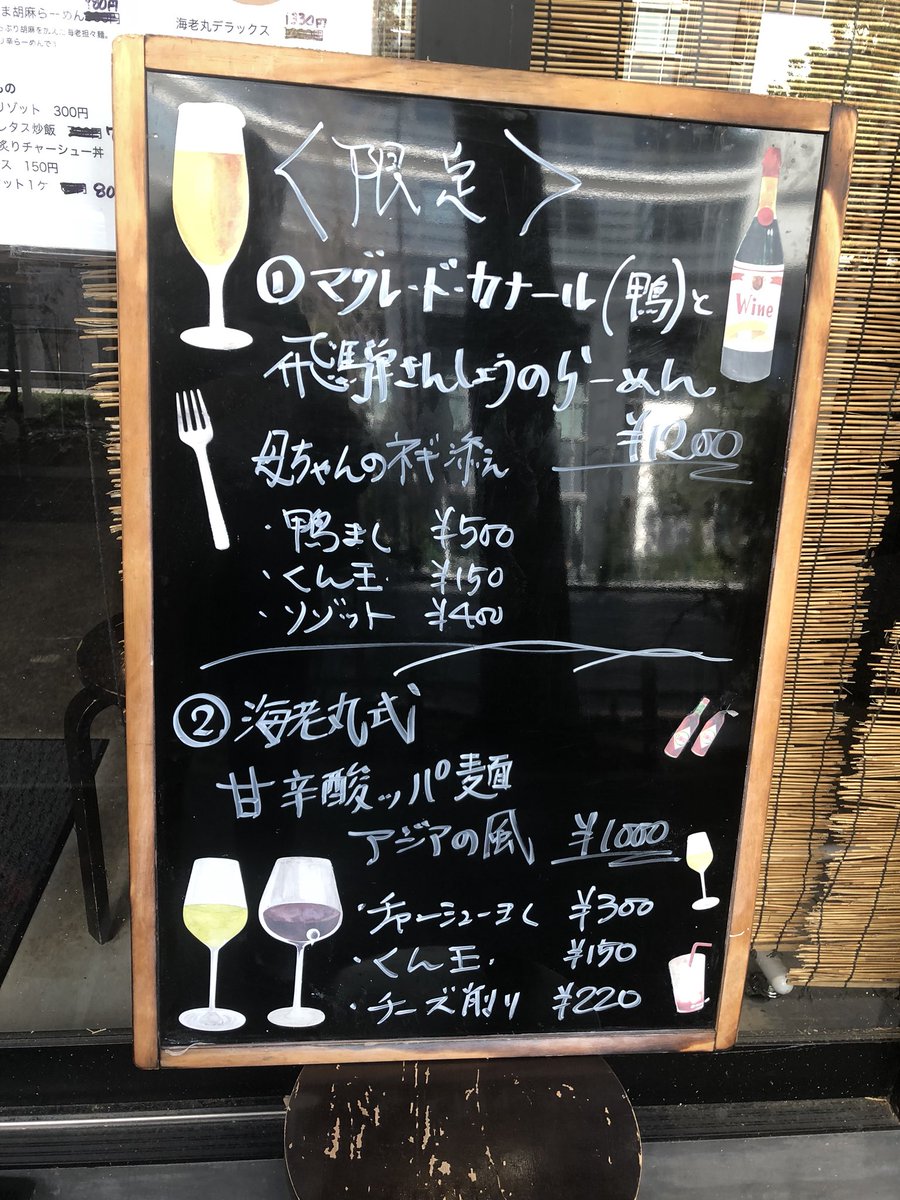 ま胡麻らーめん
海老丸デラックス 1330円
リゾット 300円
レタス炒飯
炙りチャーシュー丼
ス 150円
ット1ケ 80
〈限定〉
①マグレ・ド・カナール(鴨)と
飛騨さんしょうのらーめん
¥1200
母ちゃんのネギ添え
・鴨まし ¥500
・くん玉 ¥150
・リゾット ¥400
Wine
②海老丸式
甘辛酸ッパ麺
アジアの風 ¥1000
・チャーシューまし ¥300
・くん玉 ¥150
・チーズ削り ¥220